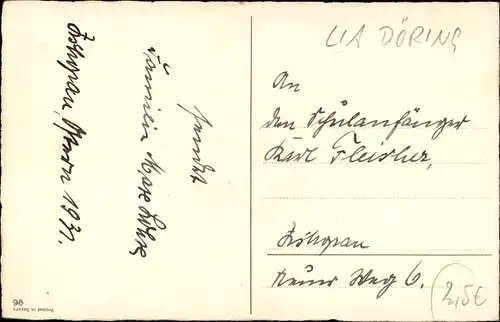 sendet
Familie Max Löhr
Zschopau, Ostern 1931.
LIA DÖRING
An
den Schulanfänger
Karl Fleischer,
Zschopau
Neuer Weg 6.
2,5€
98
Printed in Saxony